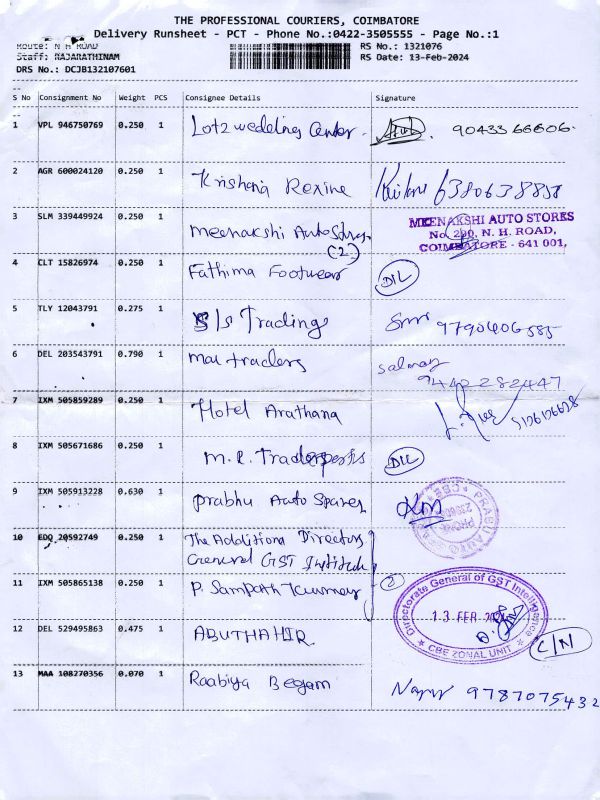 THE PROFESSIONAL COURIERS, COIMBATORE
Delivery Runsheet - PCT - Phone No.:0422-3505555 - Page No.:1
Route: N H ROAD RS No.: 1321076
Staff: RAJARATHINAM RS Date: 13-Feb-2024
DRS No.: DCJB132107601
S No Consignment No Weight PCS Consignee Details Signature
1 VPL 946750769 0.250 1 Lotz wedding Center 9043366606.
2 AGR 600024120 0.250 1 Krishna Rexine 6380638858
3 SLM 339449924 0.250 1 Meenakshi Auto Stores (2)
MEENAKSHI AUTO STORES
No. 290, N. H. ROAD,
COIMBATORE - 641 001,
4 CLT 15826974 0.250 1 Fathima Footwear DIL
5 TLY 12043791 0.275 1 S Trading 9790406585
6 DEL 203543791 0.790 1 traders Salman
9442282447
7 IXM 505859289 0.250 1 Hotel Arathana
8 IXM 505671686 0.250 1 M.R. DIL
9 IXM 505913228 0.630 1 Prabhu Auto Spares
10 EDQ 20592749 0.250 1 The Additional Directors
General GST Institute
11 IXM 505865138 0.250 1 P. Sampath Kumar 2
Directorate General of GST Intelligence
13 FEB
CBE ZONAL UNIT
12 DEL 529495863 0.475 1 ABUTHAHIR C/N
13 MAA 108270356 0.070 1 Raabiya Begam 9787075432